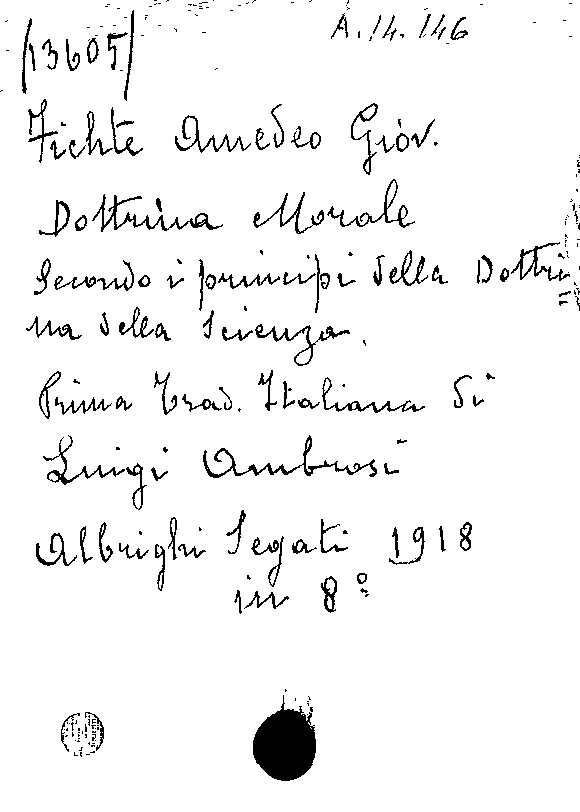 A.14.146
(13605)
Fichte Amedeo Giov.
Dottrina Morale
Secondo i principi della Dottri=
na della Scienza.
Prima Trad. Italiana di
Luigi Ambrosi
Albrighi Segati 1918
in 8º